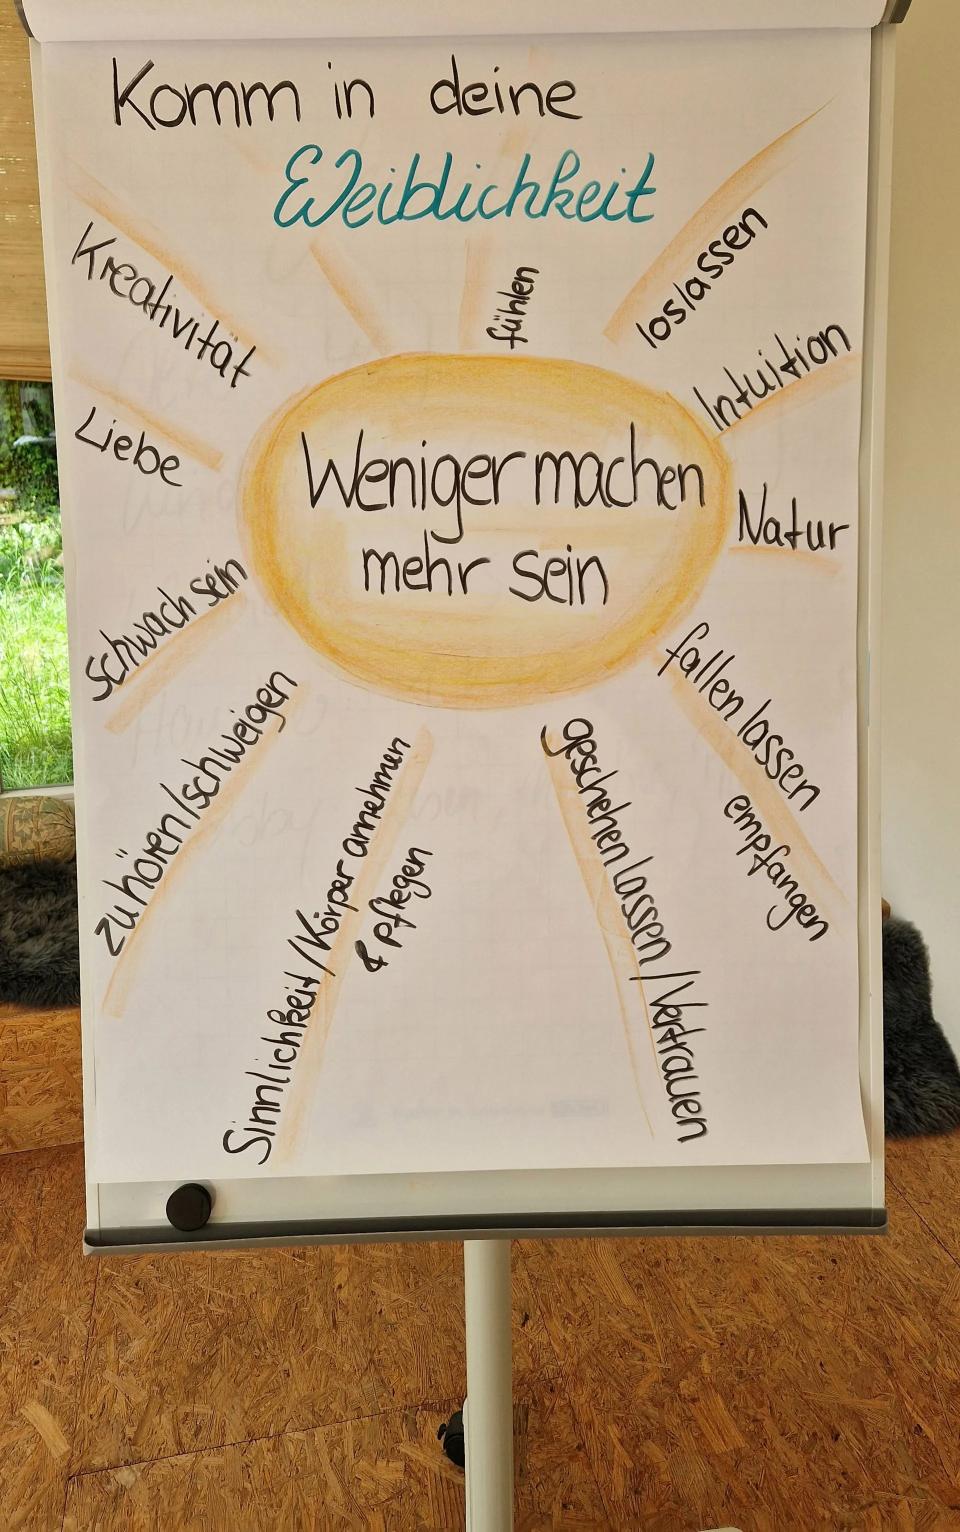 Komm in deine
Weiblichkeit
Kreativität
fühlen
loslassen
Intuition
Liebe
Weniger machen
mehr sein
Natur
schwach sein
fallen lassen
empfangen
zuhören/schweigen
Sinnlichkeit/Körper annehmen
& pflegen
geschehen lassen/Vertrauen